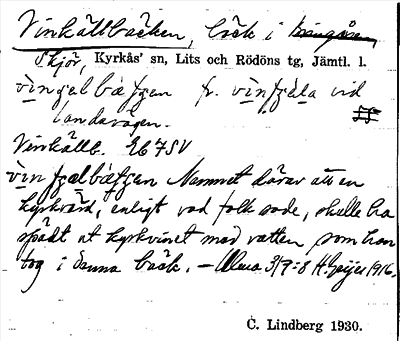 Vinkällbäcken, bäck i
Skjör, Kyrkås' sn, Lits och Rödöns tg, Jämtl. l.
fr. vid
landsvägen.
Vinkällb. Eb 7 SV
Namnet därav att en
kyrkvärd, enligt vad folk sade, skulle ha
spädt ut kyrkvinet med vatten som han
tog i denna bäck. — Alma 3/7:8 H. Geijer 1916.
C. Lindberg 1930.